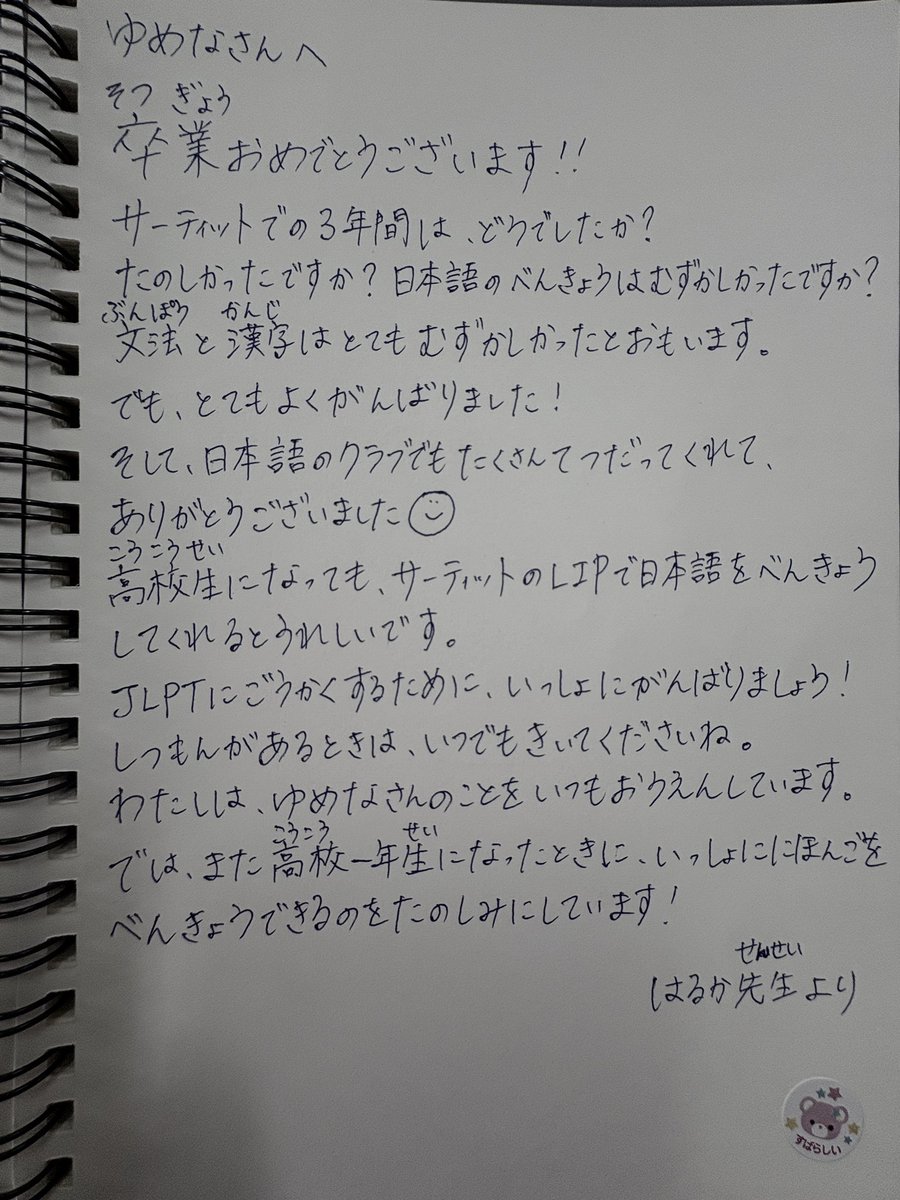 ゆめなさんへ
そつ ぎょう
卒業おめでとうございます!!
サーティットでの3年間は、どうでしたか?
たのしかったですか?日本語のべんきょうはむずかしかったですか?
ぶんぽう かんじ
文法と漢字はとてもむずかしかったとおもいます。
でも、とてもよくがんばりました!
そして、日本語のクラブでもたくさんてつだってくれて、
ありがとうございました
こうこうせい
高校生になっても、サーティットのLIPで日本語をべんきょう
してくれるとうれしいです。
JLPTにごうかくするために、いっしょにがんばりましょう!
しつもんがあるときは、いつでもきいてくださいね。
わたしは、ゆめなさんのことをいつもおうえんしています。
こうこう せい
では、また高校一年生になったときに、いっしょににほんごを
べんきょうできるのをたのしみにしています!
せんせい
はるか先生より
すばらしい